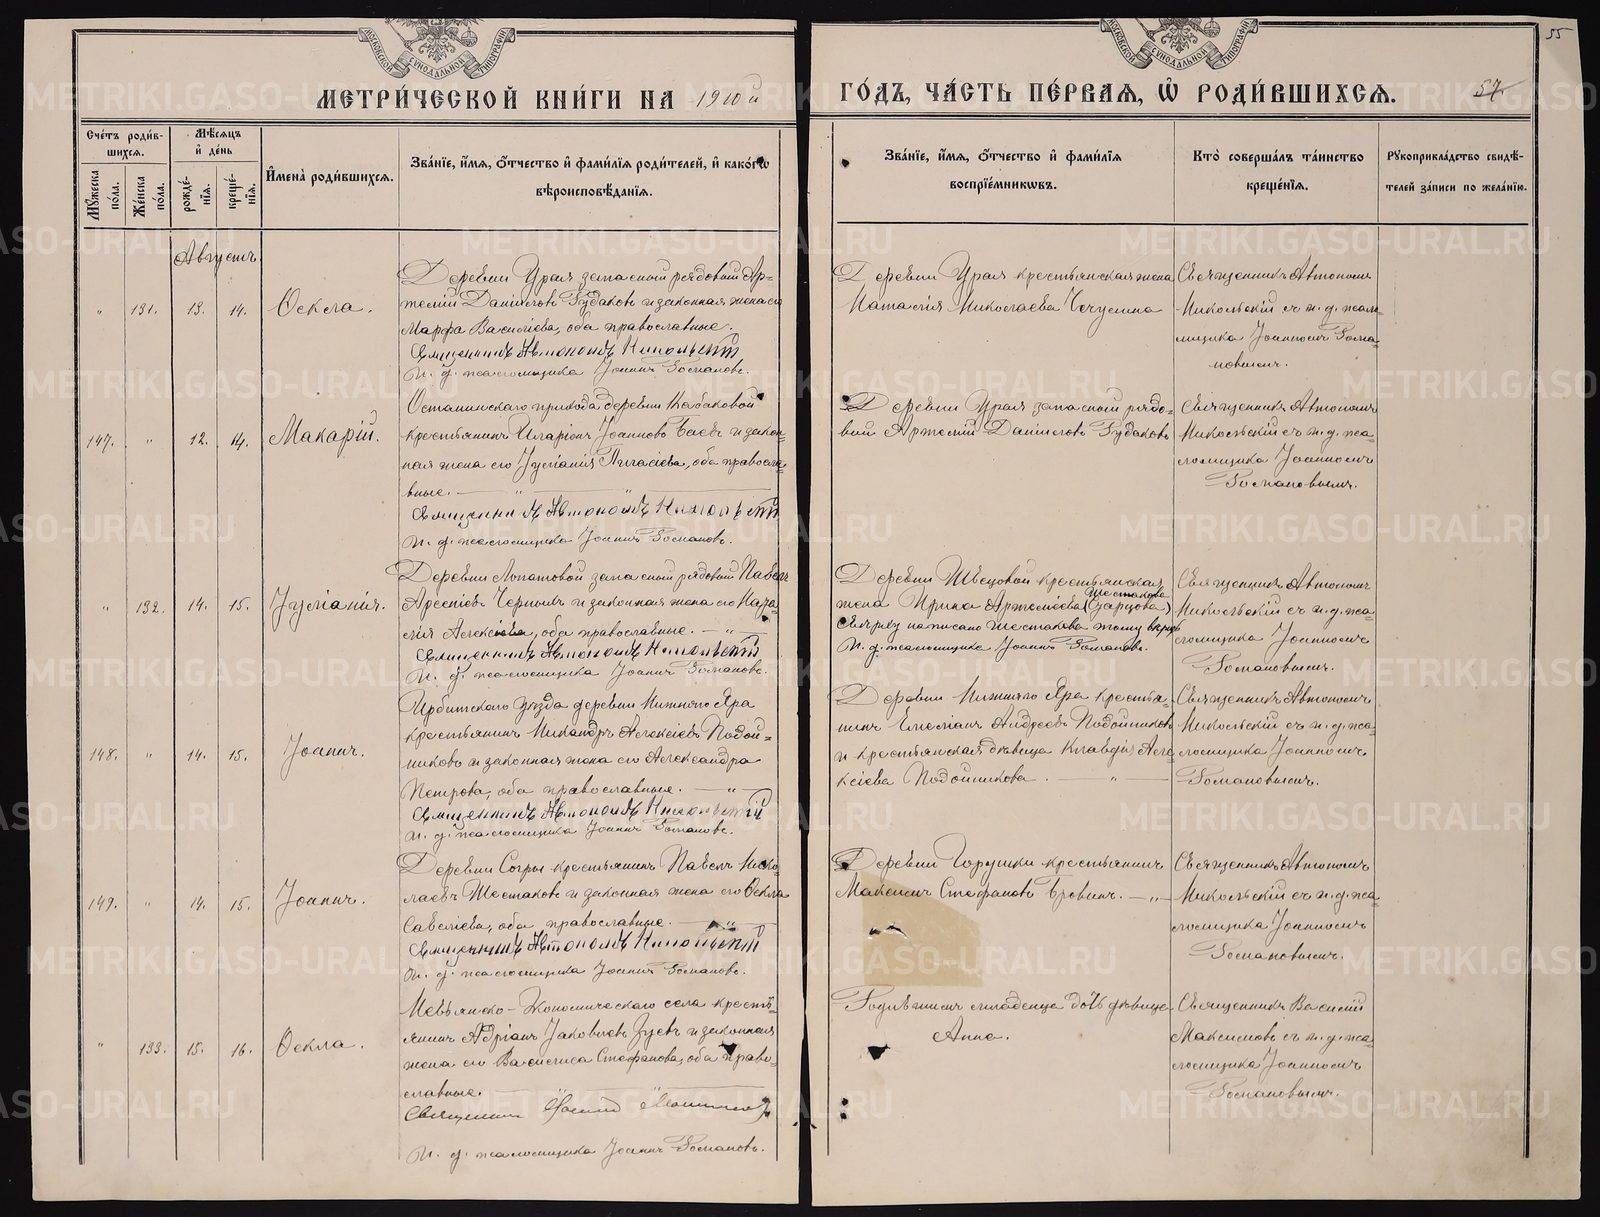 МОСКОВСКОЙ СѴНОДАЛЬНОЙ ТИПОГРАФІИ
МОСКОВСКОЙ СѴНОДАЛЬНОЙ ТИПОГРАФІИ
55
МЕТРИ́ЧЕСКОЙ КНИ́ГИ НА 1910й
ГО́ДЪ, ЧА́СТЬ ПЕ́РВАѦ, Ѡ҆ РОДИ́ВШИХСѦ.
57
Сче́тъ роди́в-
шихсѧ.
Мꙋ́жеска
по́ла.
Же́нска
по́ла.
Мѣ́сѧцъ
и҆ де́нь
рожде́-
нїѧ.
креще́-
нїѧ.
И҆мена̀ роди́вшихсѧ.
Зва́нїе, и҆́мѧ, ѻ҆́тчество и҆ фами́лїѧ роди́телей, и҆ како́гѡ
вѣроисповѣ́данїѧ.
Зва́нїе, и҆́мѧ, ѻ҆́тчество и҆ фами́лїѧ
воспрїе́мникѡвъ.
Кто̀ соверша́лъ та́инство
креще́нїѧ.
Рꙋкоприкла́дство свидѣ́-
телей за́писи по жела́нїю.
Августъ
" 131. 13. 14. Ѳекла.
Деревни Урая запасный рядовый Ар-
темій Даніиловъ Гудаковъ и законная жена его
Марфа Василіева, оба православные.
Священникъ Автономъ Никольскій
И. д. псаломщика Іоаннъ Романовъ.
Деревни Урая крестьянская жена
Наталія Николаева Чечулина
Священникъ Автономъ
Никольскій съ и. д. псало-
мщика Іоанномъ Рома-
новымъ.
147. " 12. 14. Макарій.
Останинскаго прихода деревни Кабаковой
крестьянинъ Иларіонъ Іоанновъ Баевъ и закон-
ная жена его Іуліанія Пигасіева, оба правосла-
вные. — " — "
Священникъ Автономъ Никольскій
И. д. псаломщика Іоаннъ Романовъ.
Деревни Урая запасный рядо-
вый Артемій Даніиловъ Гудаковъ
Священникъ Автономъ
Никольскій съ и. д. пса-
ломщика Іоанномъ
Романовымъ.
" 132. 14. 15. Іуліанія.
Деревни Лопатовой запасный рядовый Павелъ
Арсеніевъ Черныхъ и законная жена его Ната-
лія Алексіева, оба православные. — " —
Священникъ Автономъ Никольскій
И. д. псаломщика Іоаннъ Романовъ.
Деревни Швецовой крестьянская
Шестакова
жена Ирина Артеміева (Царцова)
Сверху написано Шестакова тому вѣрить
И. д. псаломщика Іоаннъ Романовъ.
Священникъ Автономъ
Никольскій съ и. д. пса-
ломщика Іоанномъ
Романовымъ.
148. " 14. 15. Іоаннъ.
Ирбитскаго уѣзда деревни Нижняго Яра
крестьянинъ Никандръ Алексіевъ Подой-
никовъ и законная жена его Александра
Петрова, оба православные. — " —
Священникъ Автономъ Никольскій
И. д. псаломщика Іоаннъ Романовъ.
Деревни Нижняго Яра крестья-
нинъ Емеліанъ Андреевъ Подойниковъ
и крестьянская дѣвица Клавдія Але-
ксіева Подойникова. — " —
Священникъ Автономъ
Никольскій съ и. д. пса-
ломщика Іоанномъ
Романовымъ.
149. " 14. 15. Іоаннъ.
Деревни Согры крестьянинъ Павелъ Нико-
лаевъ Шестаковъ и законная жена его Ѳекла
Савеліева, оба православные. — " —
Священникъ Автономъ Никольскій
И. д. псаломщика Іоаннъ Романовъ.
Деревни Горушки крестьянинъ
Максимъ Стефановъ Бровинъ. — " —
Священникъ Автономъ
Никольскій съ и. д. пса-
ломщика Іоанномъ
Романовымъ.
" 133. 15. 16. Ѳекла.
Невьянско-Экономическаго села кресть-
янинъ Адріанъ Іаковлевъ Зуевъ и законная
жена его Василиса Стефанова, оба право-
славные. — " — " —
Священникъ Василій Максимовъ
И. д. псаломщика Іоаннъ Романовъ.
Родителемъ младенца дочь дѣвица
Анна.
Священникъ Василій
Максимовъ съ и. д. пса-
ломщика Іоанномъ
Романовымъ.
METRIKI.GASO-URAL.RU